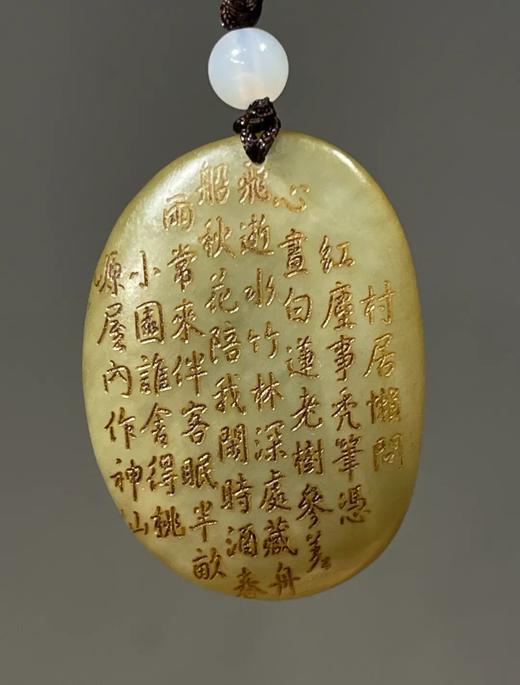 村居懶問
紅塵事秃筆憑
心畫白蓮老樹參差
飛逝水竹林深處藏舟
船秋花陪我閑時酒春
雨常來伴客眠半畝
小園誰舍得桃
源屋內作神仙